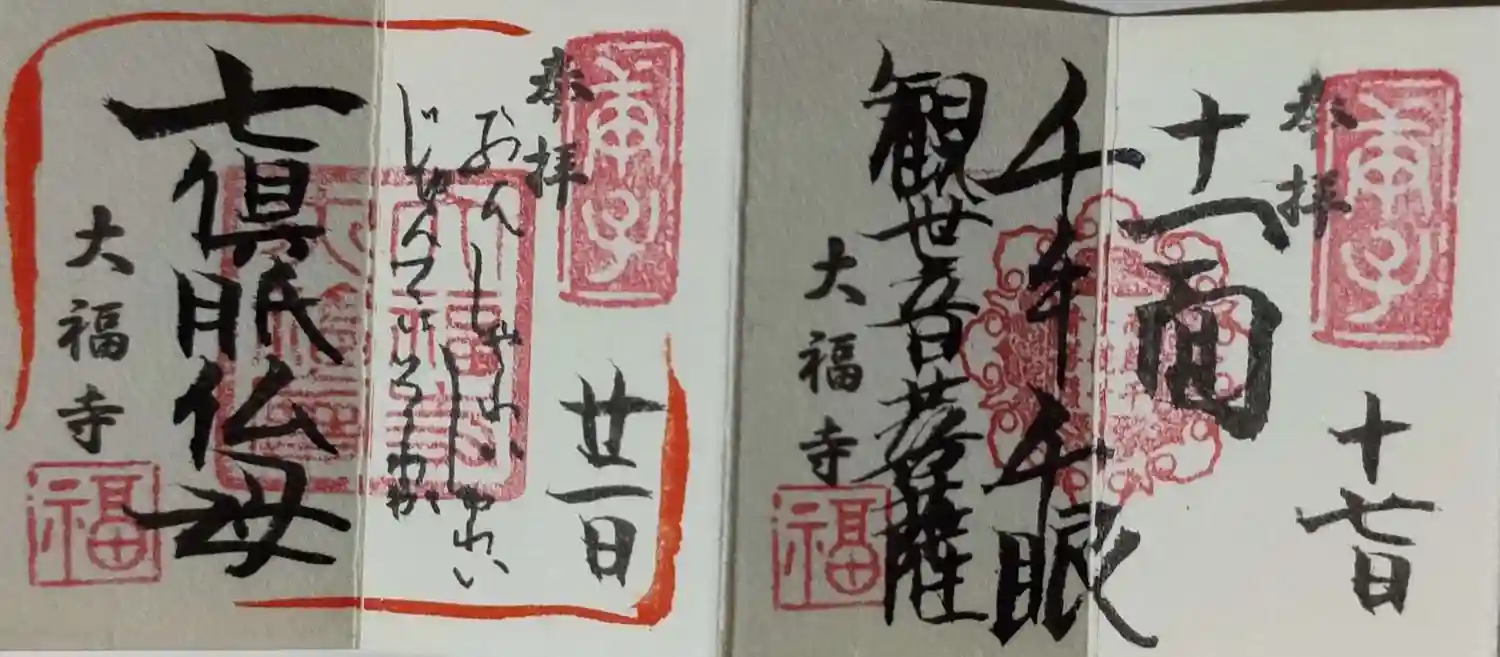 奉拝
庚子
十七日
十一面
千手千眼
観世音菩薩
大福寺
福
奉拝
庚子
廿一日
おんしゃれいしゃれい
じゅんていそわか
七倶胝仏母
大福寺
福